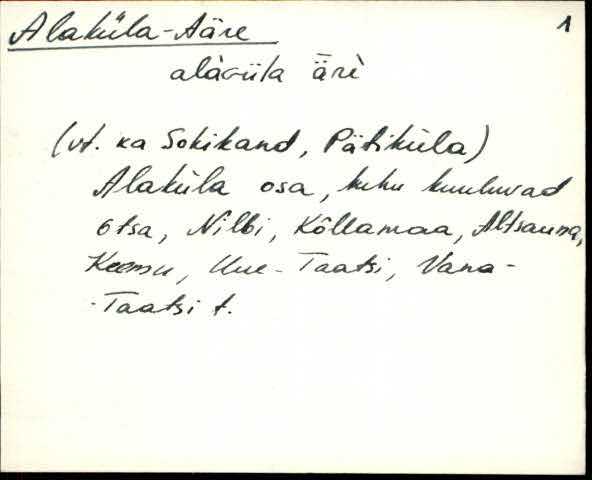 Alaküla-Ääre 1
(vt. ka Sokikand, Pätiküla)
Alaküla osa, kuhu kuuluvad
Otsa, Nilbi, Kõllamaa, Altsauna,
Keemu, Uue-Taatsi, Vana-
-Taatsi t.